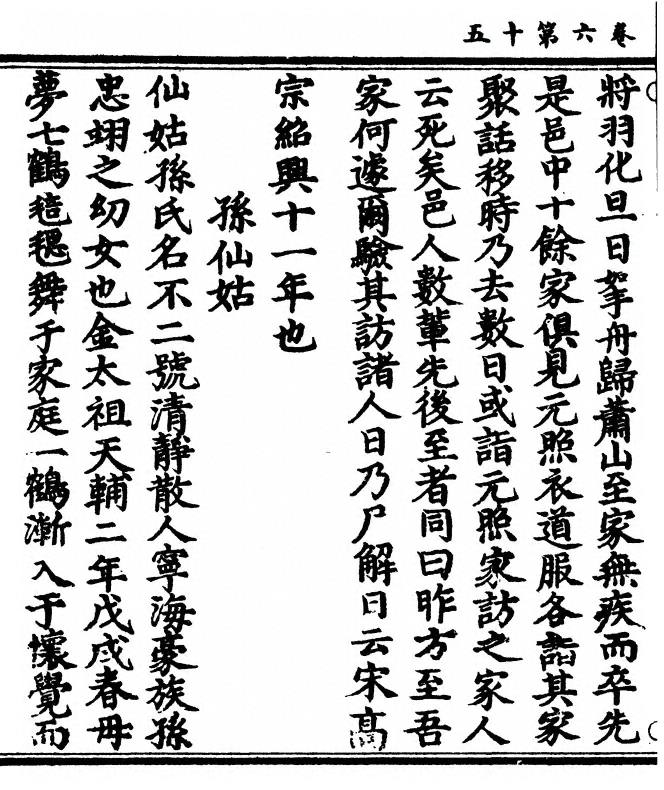 卷六第十五
將羽化旦日拏舟歸蕭山至家無疾而卒先
是邑中十餘家俱見元照衣道服各詣其家
聚話移時乃去數日或詣元照家訪之家人
云死矣邑人數輩先後至者同曰昨方至吾
家何遽爾驗其訪諸人日乃尸解日云宋高
宗紹興十一年也
孫仙姑
仙姑孫氏名不二號清靜散人寧海豪族孫
忠翊之幼女也金太祖天輔二年戊戌春母
夢七鶴翩翩舞于家庭一鶴漸入于懷覺而